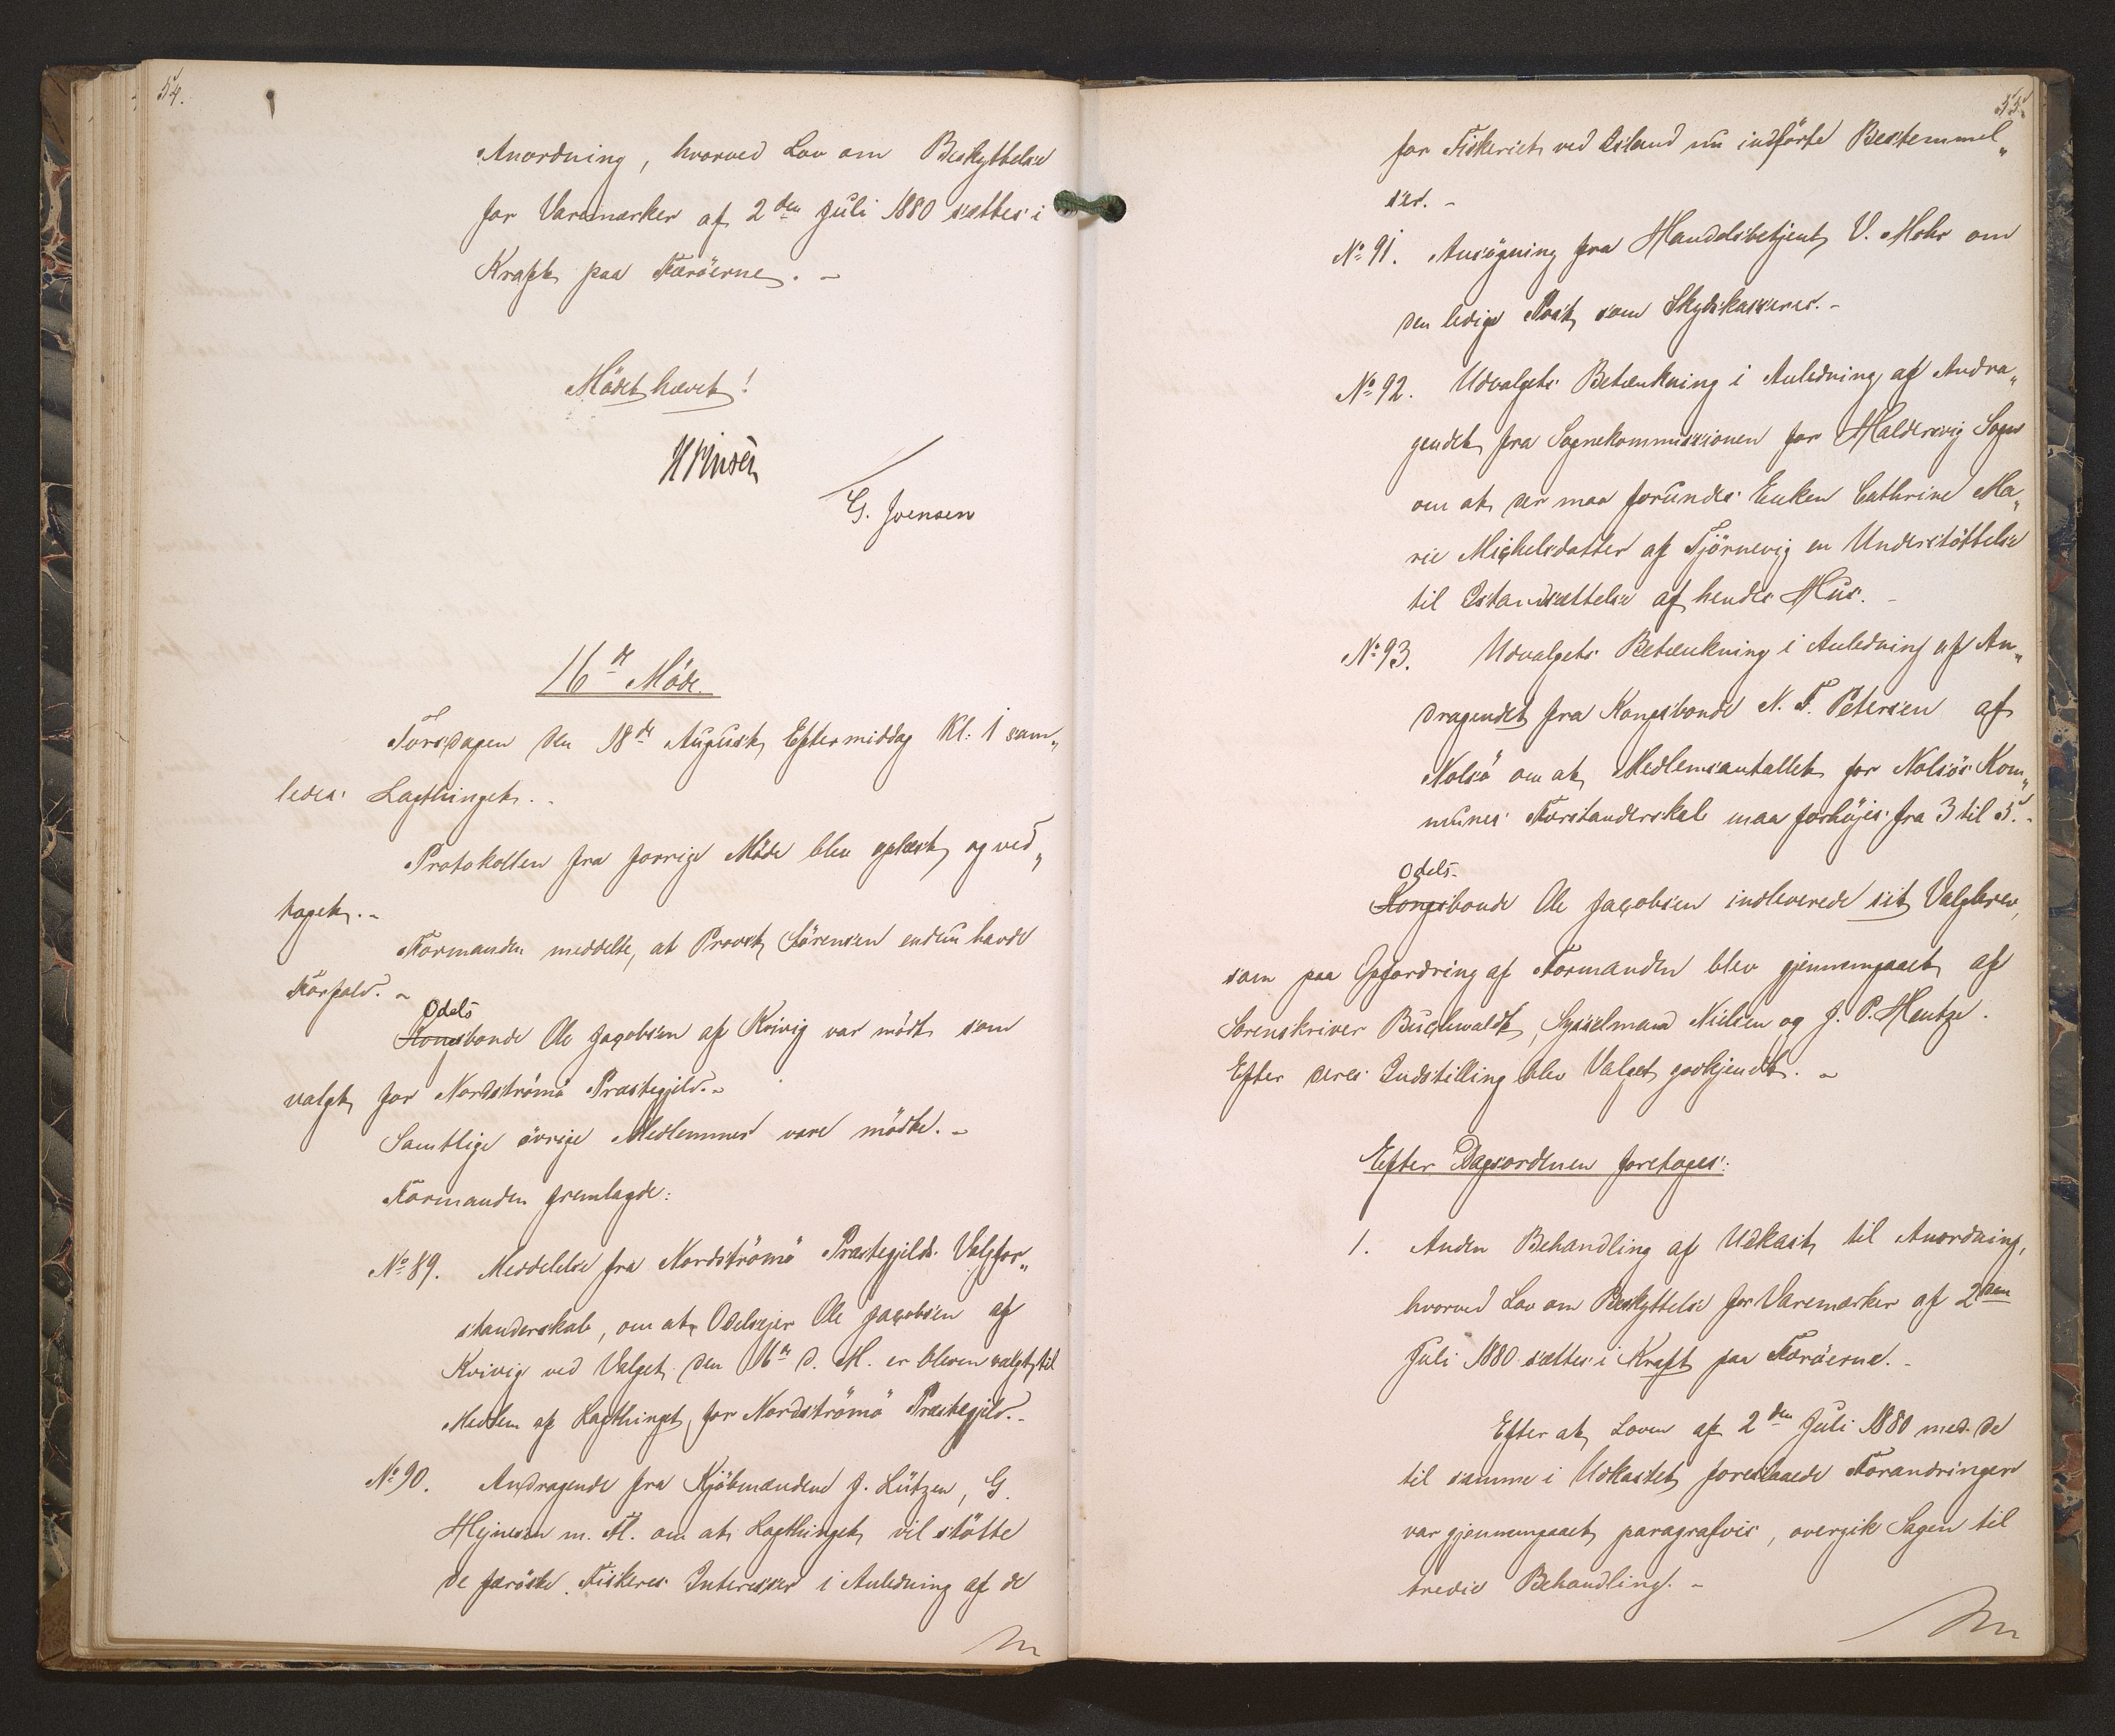 54.
Anordning, hvorved Lov om Beskyttelse
for Varemærker af 2den Juli 1880 sættes i
Kraft paa Færöerne. -
Mödet hævet!
G. Joensen
16de Möde.
Torsdagen den 18de August Eftermiddag Kl. 1 sam„
ledes Lagthinget. -
Protokollen fra forrige Möde blev oplæst og ved„
taget. -
Formanden meddelte, at Provst Sörensen endnu havde
Forfald. -
Odels
Kongsbonde Ole Jacobsen af Kvivig var mödt som
valgt for Nordströmö Præstegjeld. -
Samtlige övrige Medlemmer vare mödte. -
Formanden fremlagde:
No 89. Meddelelse fra Nordströmö Præstegjelds Valgfor„
standerskab, om at Odelsejer Ole Jacobsen af
Kvivig ved Valget den 16de d. M. er bleven valgt til
Medlem af Lagthinget for Nordströmö Præstegjeld. -
No 90. Andragende fra Kjöbmændene J. Lützen, G.
Hejnesen m. Fl. om at Lagthinget vil stötte
de færöske Fiskeres Interesser i Anledning af de
55.
for Fiskeriet ved Island nu indförte Bestemmel„
ser. -
No 91. Ansögning fra Handelsbetjent V. Mohr om
den ledige Post som Skydskasserer. -
No 92. Udvalgets Betænkning i Anledning af Andra„
gendet fra Sognekommissionen for Haldersvig Sogn
om at der maa forundes Enken Cathrine Ma„
rie Michelsdatter af Tjörnevig en Understöttelse
til Istandsættelse af hendes Hus. -
No 93. Udvalgets Betænkning i Anledning af An„
dragendet fra Kongsbonde N. F. Petersen af
Nolsö om at Medlemsantallet for Nolsös Kom„
munes Forstanderskab maa forhöjes fra 3 til 5. -
Odels-
Kongsbonde Ole Jacobsen indleverede sit Valgbrev,
som paa Opfordring af Formanden blev gjennemgaaet af
Sorenskriver Buchwaldt, Sysselmand Nielsen og J. P. Hentze.
Efter deres Indstilling blev Valget godkjendt. -
Efter Dagsordenen foretoges:
1. Anden Behandling af Udkast til Anordning,
hvorved Lov om Beskyttelse for Varemærker af 2den
Juli 1880 sættes i Kraft paa Færöerne. -
Efter at Loven af 2den Juli 1880 med de
til samme i Udkastet foreslaaede Forandringer
var gjennemgaaet paragrafvis, overgik Sagen til
tredie Behandling. -